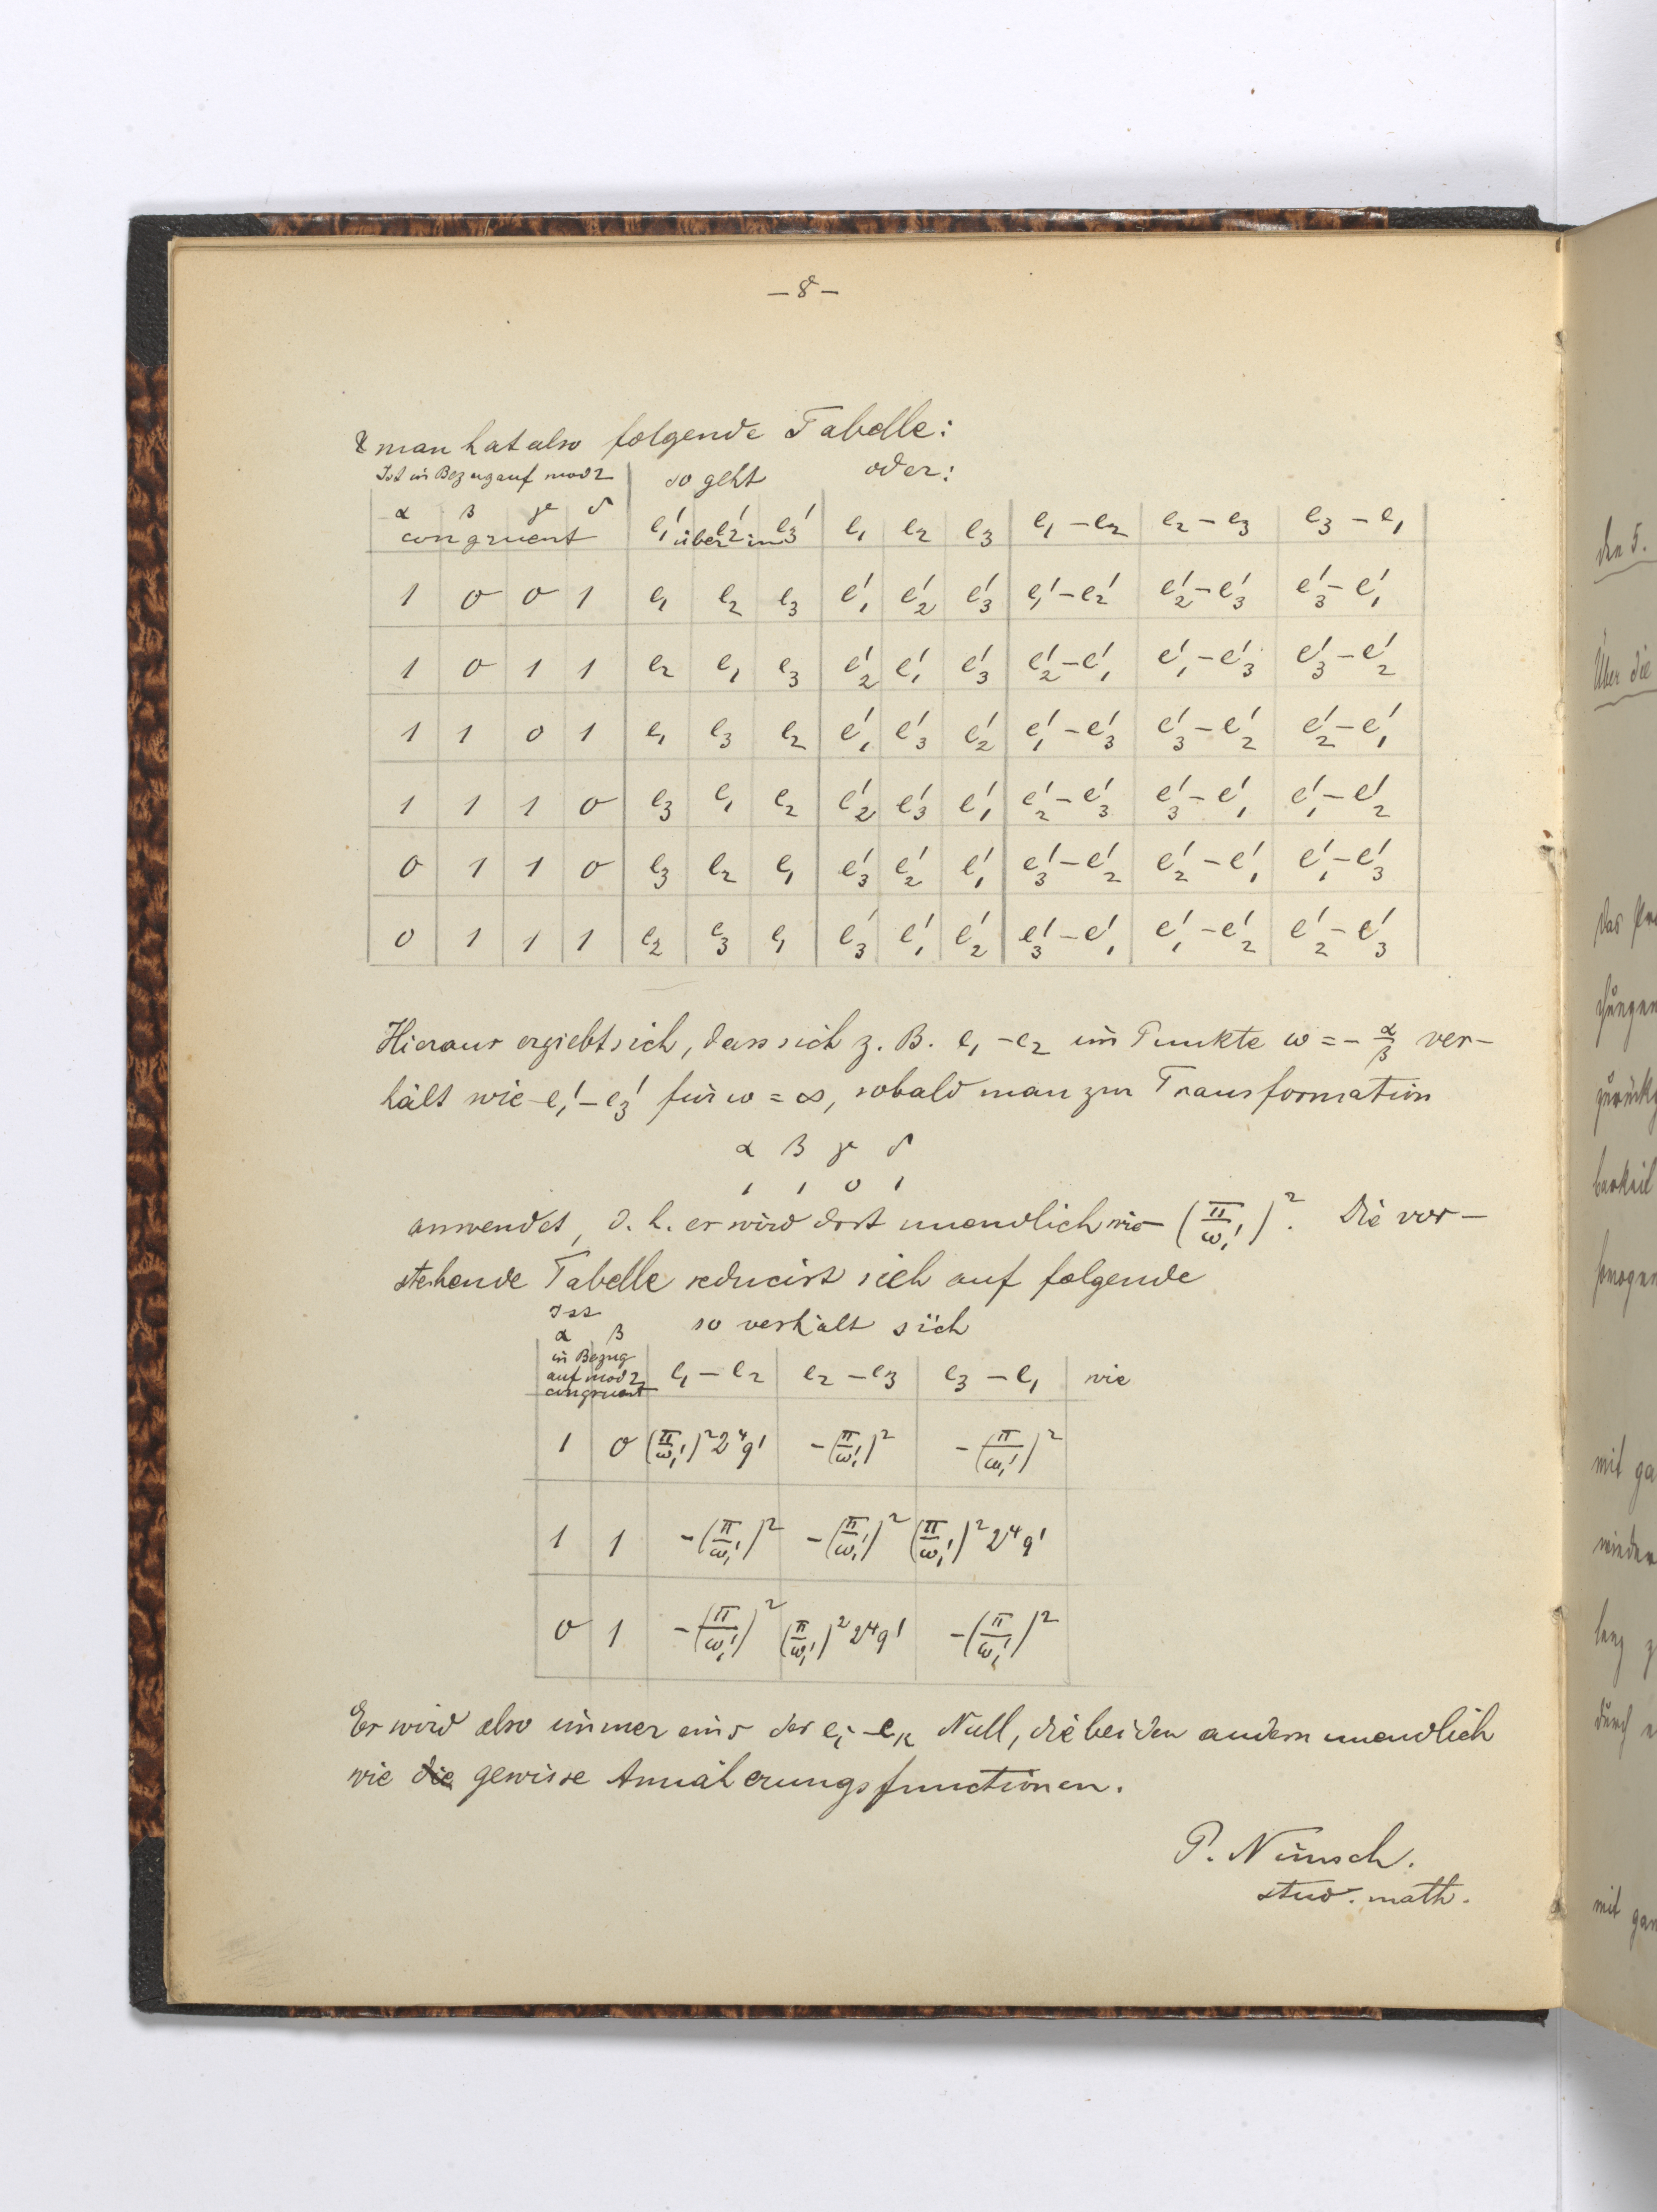 – 8 –
& man hat also folgende Tabelle:
Ist in Bezug auf mod 2 so geht oder:
α β γ δ
congruent e₁' e₂' e₃' über in e₁ e₂ e₃ e₁ – e₂ e₂ – e₃ e₃ – e₁
1 0 0 1 e₁ e₂ e₃ e₁' e₂' e₃' e₁' – e₂' e₂' – e₃' e₃' – e₁'
1 0 1 1 e₂ e₁ e₃ e₂' e₁' e₃' e₂' – e₁' e₁' – e₃' e₃' – e₂'
1 1 0 1 e₁ e₃ e₂ e₁' e₃' e₂' e₁' – e₃' e₃' – e₂' e₂' – e₁'
1 1 1 0 e₃ e₁ e₂ e₂' e₃' e₁' e₂' – e₃' e₃' – e₁' e₁' – e₂'
0 1 1 0 e₃ e₂ e₁ e₃' e₂' e₁' e₃' – e₂' e₂' – e₁' e₁' – e₃'
0 1 1 1 e₂ e₃ e₁ e₃' e₁' e₂' e₃' – e₁' e₁' – e₂' e₂' – e₃'
Hieraus ergiebt sich, dass sich z. B. e₁ – e₂ im Punkte ω = – α/β ver–
hält wie e₁' – e₃' für ω = ∞, sobald man zur Transformation
α β γ δ
1 1 0 1
anwendet, d. h. er wird dort unendlich wie – (π/ω₁')². Die vor–
stehende Tabelle reducirt sich auf folgende
Ist
α β so verhält sich
in Bezug
auf mod 2 e₁ – e₂ e₂ – e₃ e₃ – e₁ wie
congruent
1 0 (π/ω₁')² 2⁴q' –(π/ω₁')² –(π/ω₁')²
1 1 –(π/ω₁')² –(π/ω₁')² (π/ω₁')² 2⁴q'
0 1 –(π/ω₁')² (π/ω₁')² 2⁴q' –(π/ω₁')²
Es wird also immer eins der eᵢ – eₖ Null, die beiden andern unendlich
wie die gewisse Annäherungsfunctionen.
P. Nimsch.
stud. math.
den 5.
Über die
das
zurück
mit
durch
mit